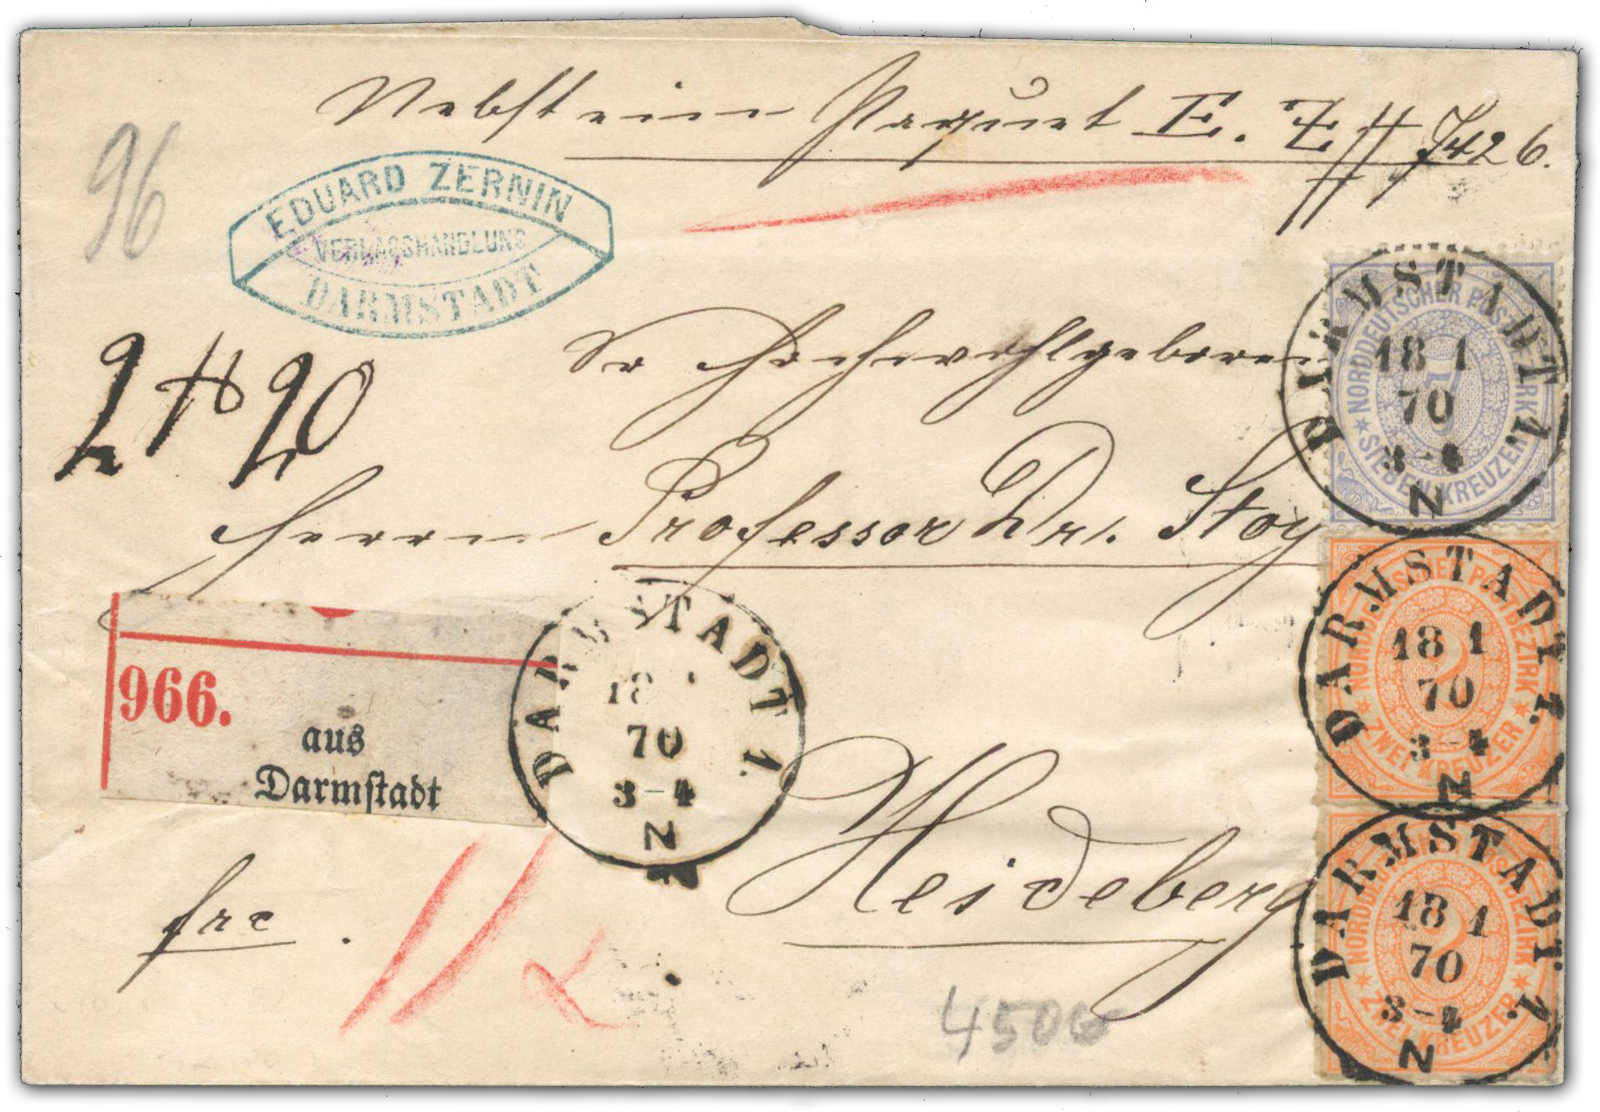 Nebst ein Paquet E. Z # 7426.
96
EDUARD ZERNIN
VERLAGSHANDLUNG
DARMSTADT
Sr Hochwohlgeboren
2 # 20
Herrn Professor Dr. Stoy
966.
aus
Darmstadt
DARMSTADT 1.
18
70
3-4
N
Heidelberg
frc.
4500
NORDDEUTSCHER POSTBEZIRK
SIEBEN KREUZER
DARMSTADT 1.
18 1
70
3-4
N
NORDDEUTSCHER POSTBEZIRK
2
ZWEI KREUZER
DARMSTADT 1.
18 1
70
3-4
N
NORDDEUTSCHER POSTBEZIRK
2
ZWEI KREUZER
DARMSTADT 1.
18 1
70
3-4
N